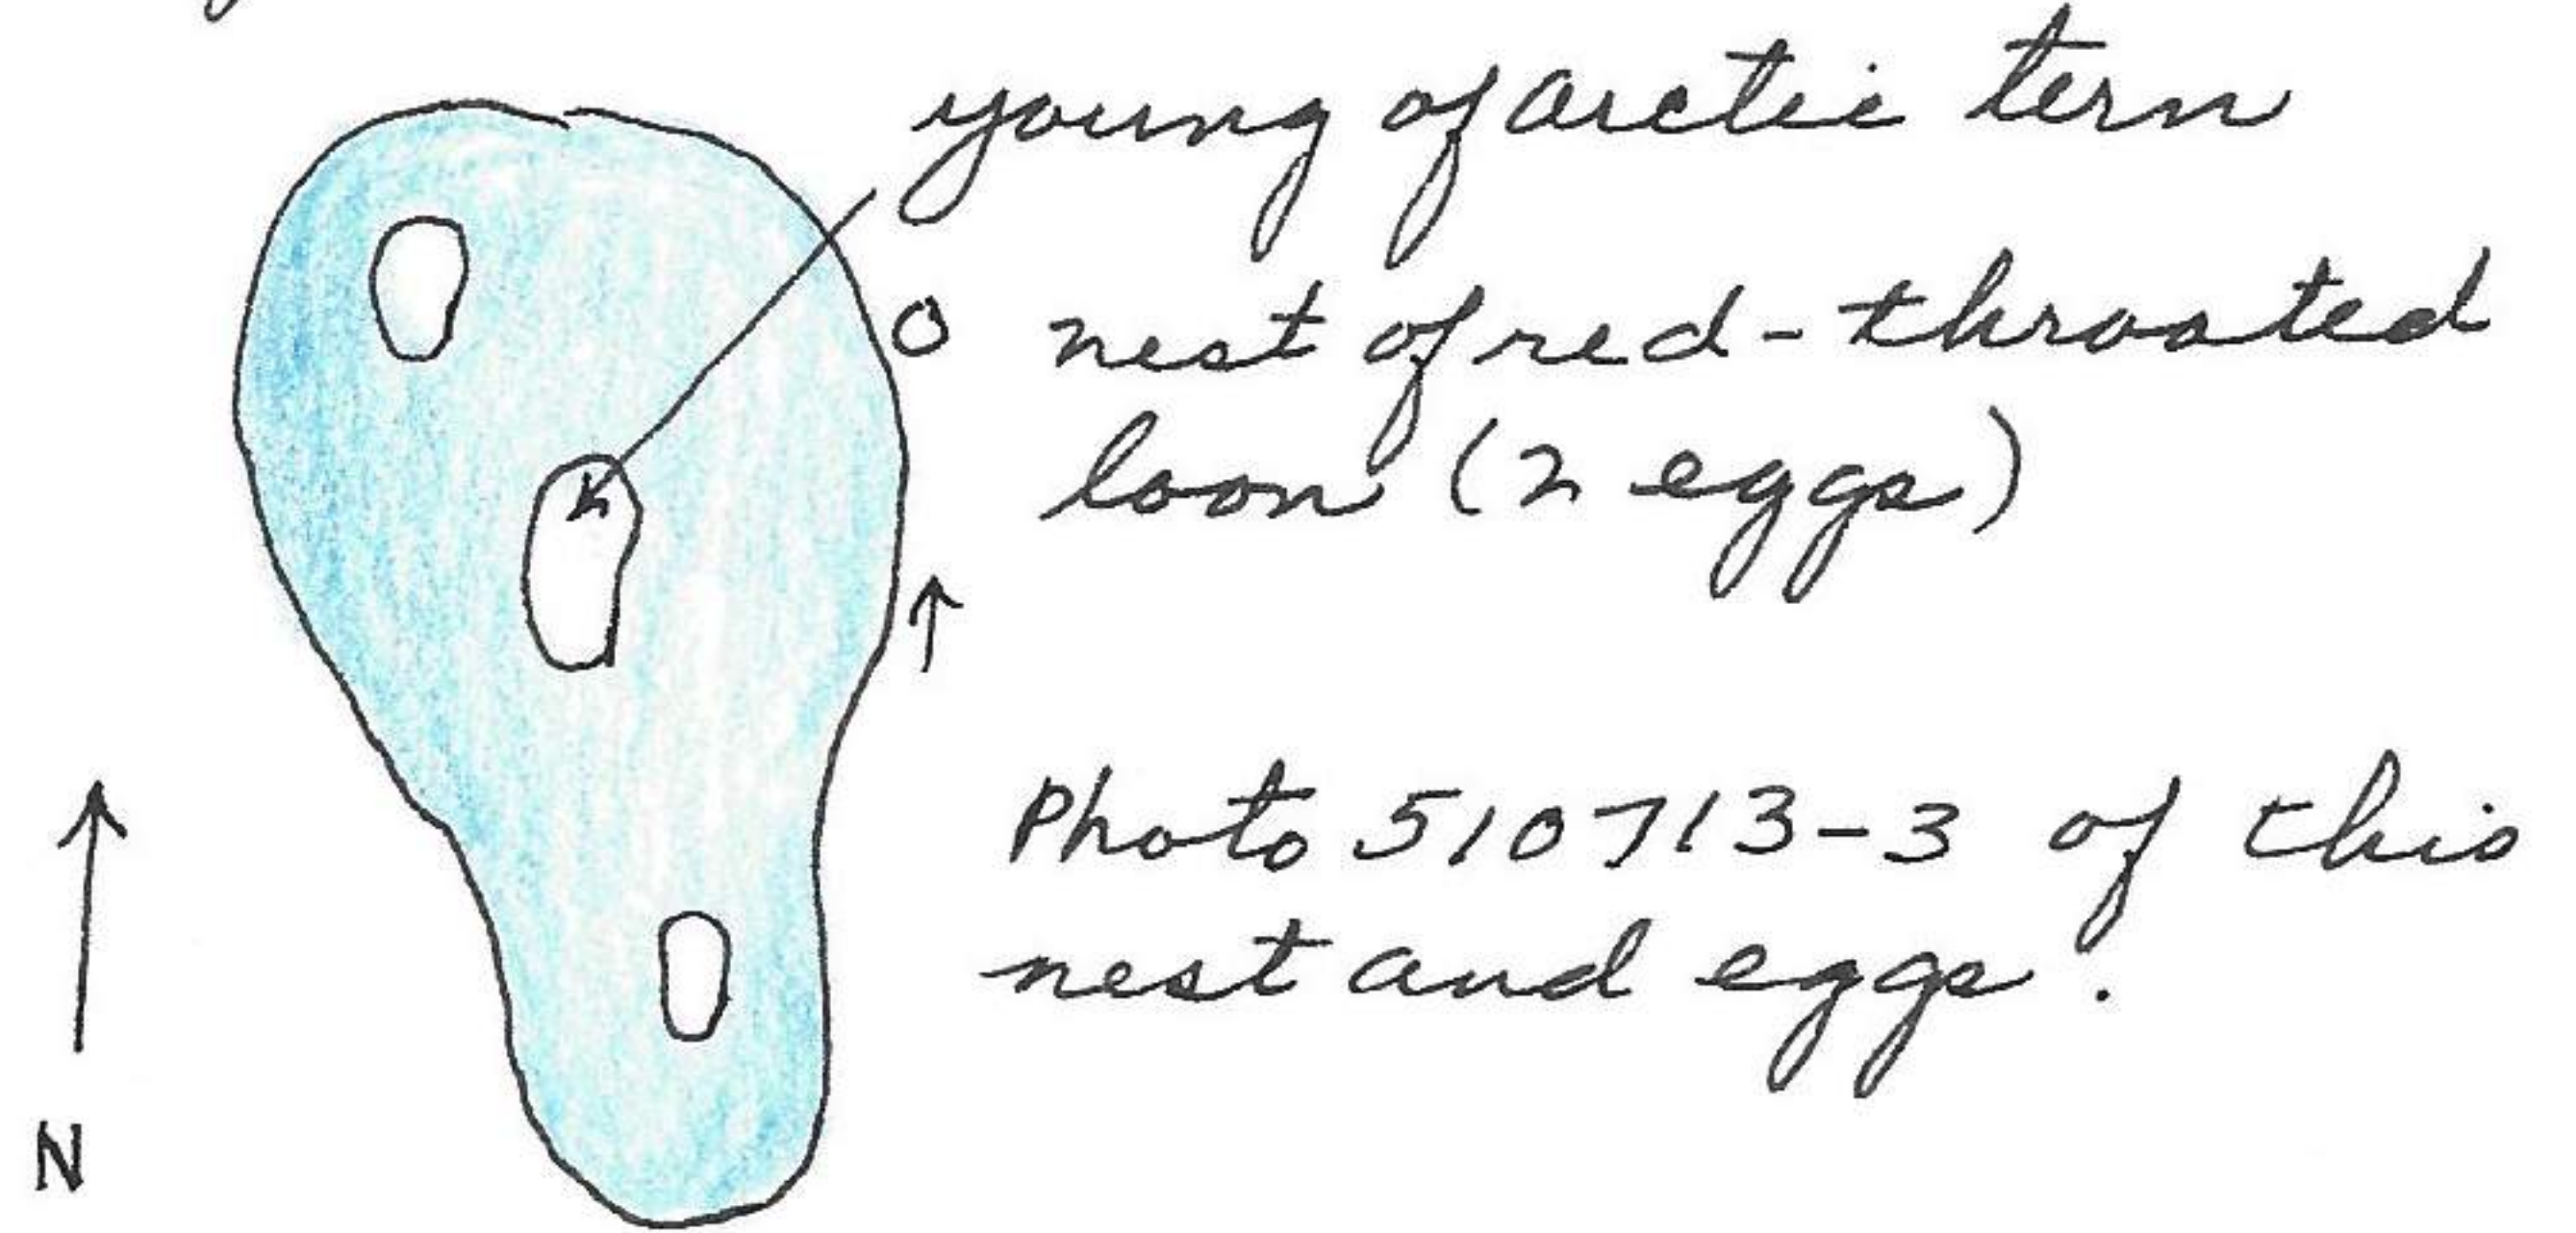 young of arctic tern
O nest of red-throated
loon (2 eggs)
Photo 510713-3 of this
nest and eggs.
N